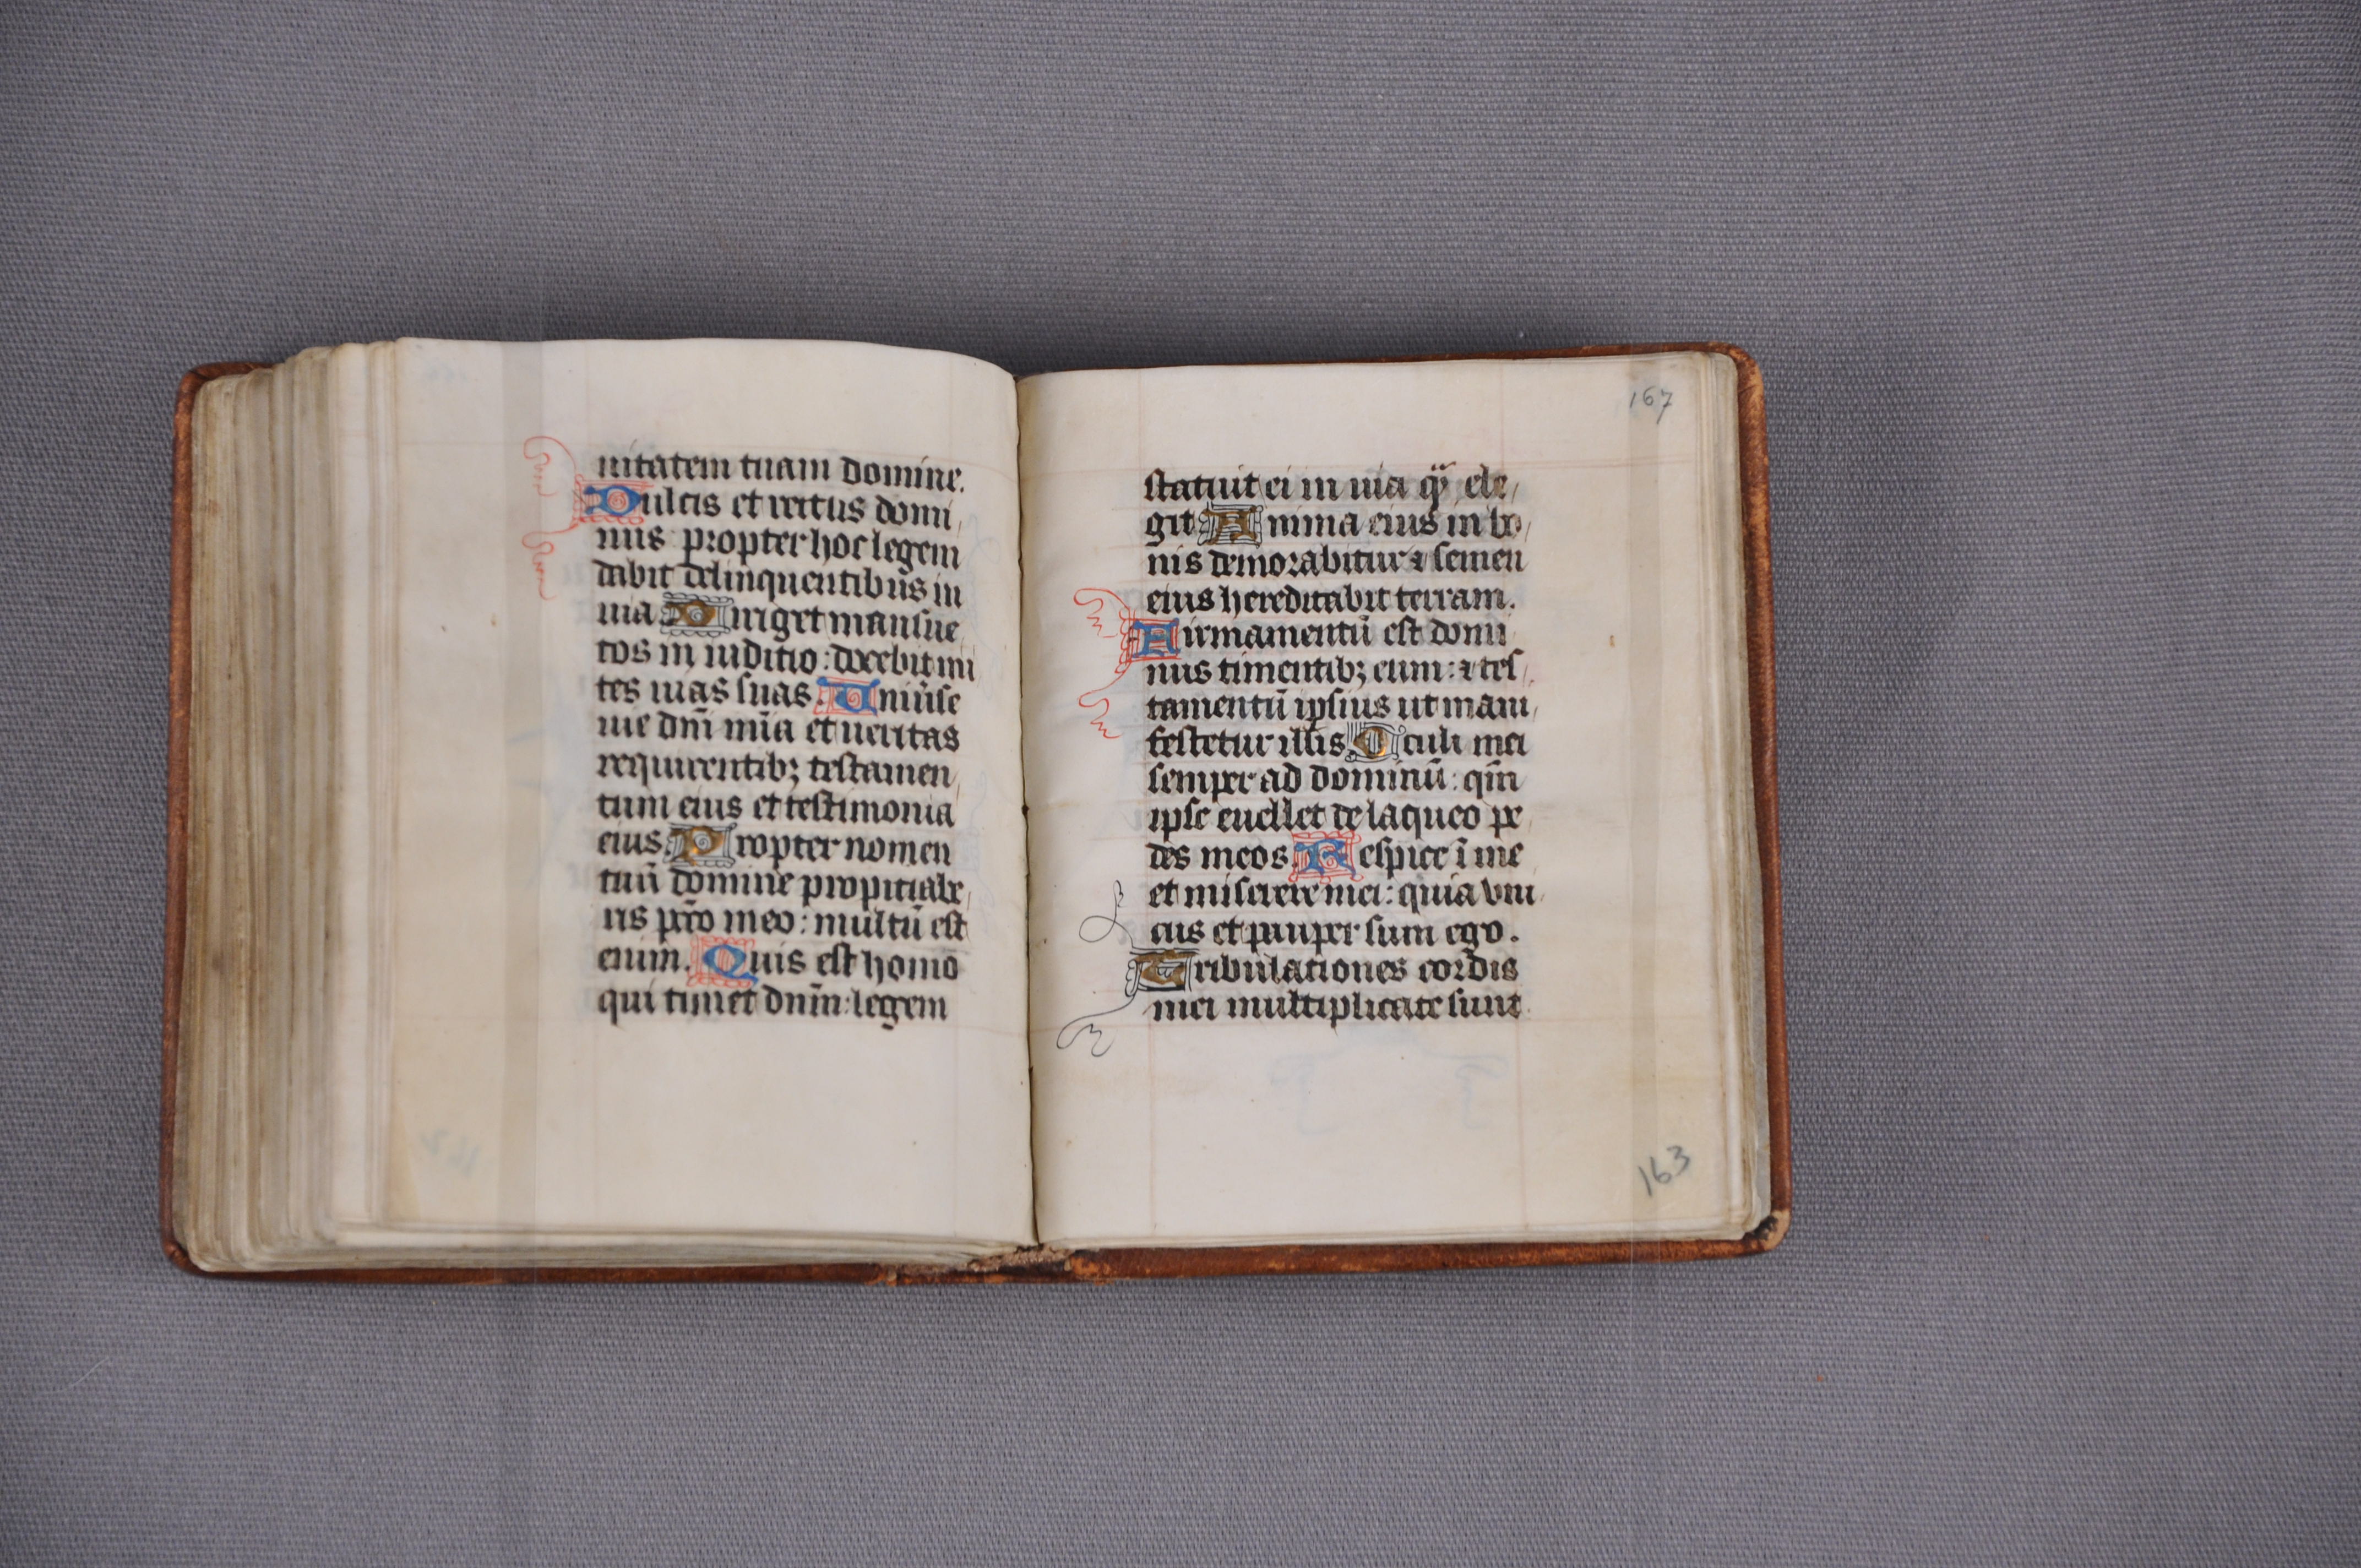 nitatem tuam domine.
Dulcis et rectus domi
nus propter hoc legem
dabit delinquentibus in
uia Diriget mansue
tos in iuditio: docebit mi
tes uias suas. Uniũse
uie dñi mĩa et ueritas
requirentibꝫ testamen
tum eius et testimonia
eius. Propter nomen
tuũ domine propitiabe
ris pc̃co meo: multũ est
enim. Quis est homo
qui timet dnĩm: legem
167
statuit ei in uia qͣ̃ ele
git Anima eius in bo
nis demorabitur ⁊ semen
eius hereditabit terram.
Firmamentũ est domi
nus timentibꝫ eum: ⁊ tes
tamentũ ipsius ut mani
festetur illis. Oculi mei
semper ad dominũ: qm̃
ipse euellet de laqueo pe
des meos. Respice ĩ me
et miserere mei: quia vni
cus et pauper sum ego.
Tribulationes cordis
mei multiplicate sunt
163